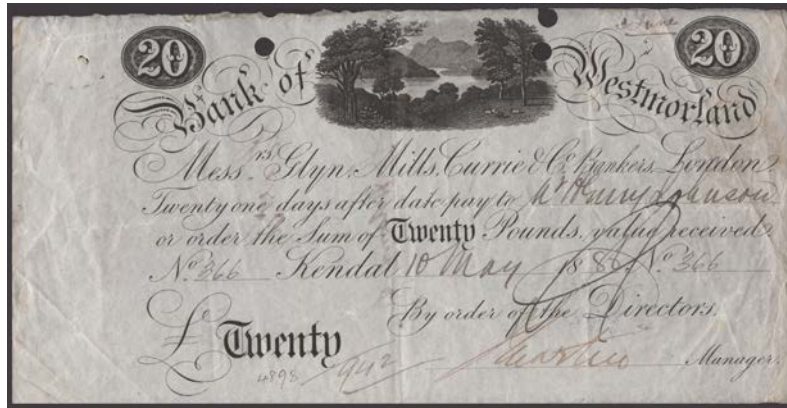 20 20
Bank of Westmorland
Messrs. Glyn, Mills, Currie & Co. Bankers, London.
Twenty one days after date pay to Mr Henry Johnson
or order the Sum of Twenty Pounds, value received.
No. 366 Kendal 10 May No. 366
By order of the Directors.
£ Twenty
Manager.
4898 942